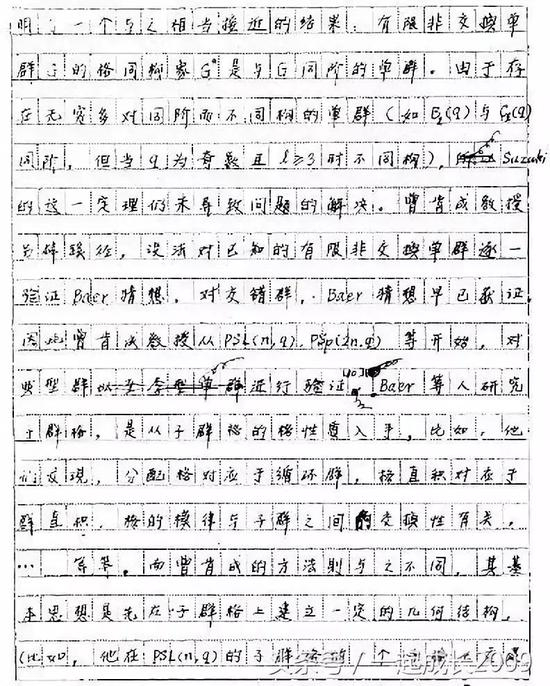 明了一个与之相当接近的结果：有限非交换单
群G的格同构象G*是与G同阶的单群。由于存
在无穷多对同阶而不同构的单群（如Bℓ(q)与Cℓ(q)
同阶，但当q为奇数且ℓ≥3时不同构），Suzuki
的这一定理仍未导致问题的解决。曾肯成教授
另辟蹊径，设法对已知的有限非交换单群逐一
验证Baer猜想。对交错群，Baer猜想早已获证。
因此曾肯成教授从PSL(n,q)，PSp(2n,q)等开始，对
典型群进行验证[10]。Baer等人研究
子群格，是从子群格的格性质入手，比如，他
们发现，分配格对应于循环群，格直积对应于
群直积，格的模律与子群之间的交换性有关，
… 等等。而曾肯成的方法则与之不同，其基
本思想是先在子群格上建立一定的几何结构，
（比如，他在PSL(n,q)的子群格的一个
头条号/一起成长2009